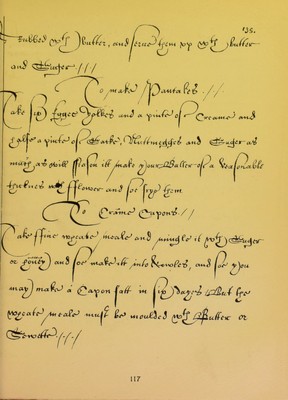 138.
Rubbed wth butter, and serve them vp wth butter
and Suger
To make Pancakes
Take six Egges yolkes and a pinte of Creame and
halfe a pinte of Sacke, Nuttmegges and Suger as
much as will season itt make your Batter of a Reasonable
thicknes wth fflower and soe frye them
To Crame Capons
Take ffine wheate meale and mingle it wth Suger
or honey and soe make itt into Rowles, and soe you
may make a Capon fatt in six Dayes But the
wheate meale must be moulded wth Butter or
Sewette
117